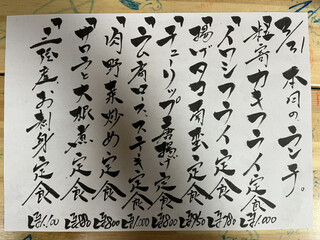 2/21 本日のランチ。
・粒寄カキフライ定食 1,000
・イワシフライ定食 780
・揚げタコ南蛮定食 950
・チューリップ唐揚げ定食 800
・ラム肩ロースステーキ定食 1,000
・肉野菜炒め定食 800
・ナロラと大根煮定食 880
・三陸産お刺身定食 1,100